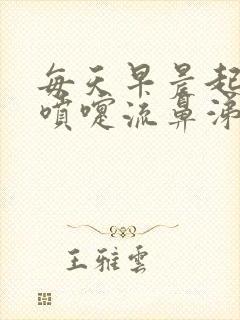 每天早晨起
噴嚏流鼻涕
王雅雲